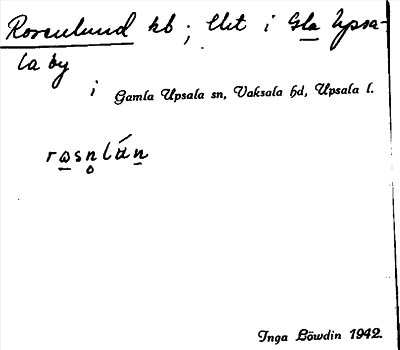 Rosenlund hb; Utt i Gla Upsa-
la by
i Gamla Upsala sn, Vaksala hd, Upsala l.
Inga Löwdin 1942.